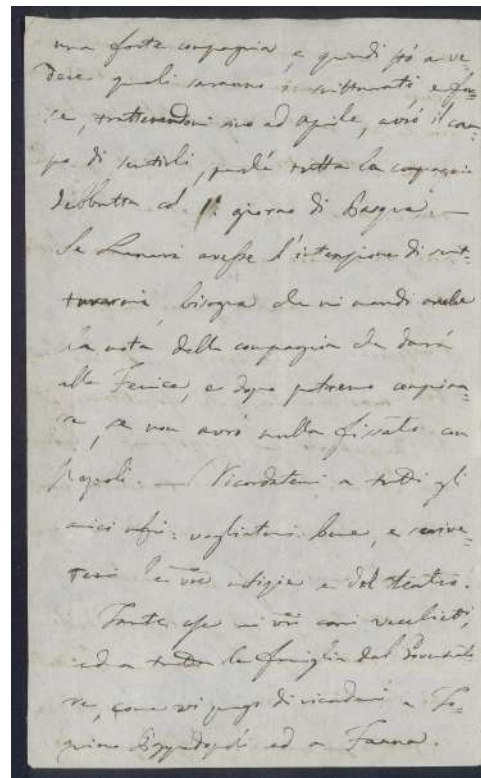 una forte compagnia, e quindi sto a ve-
dere quali saranno i scritturati, e for-
se, trattenendomi sino ad Aprile, avrò il cam-
po di sentirli, perché tutta la compagnia
debbutta col 1º giorno di Pasqua. —
Se Lanari avesse l'intenzione di scrit-
turarmi, bisogna che mi mandi anche
la nota della compagnia che darà
alla Fenice, e dopo potremo combina-
re, se non avrò nulla fissato con
Napoli. — Ricordatemi a tutti gli
amici vogliatemi bene, e scrive-
temi le vre notizie e del teatro.
Tante cose ai vri cari vecchietti,
ed a tutta la famiglia del
re, come vi prego di ricordarmi a
ed a Farna.